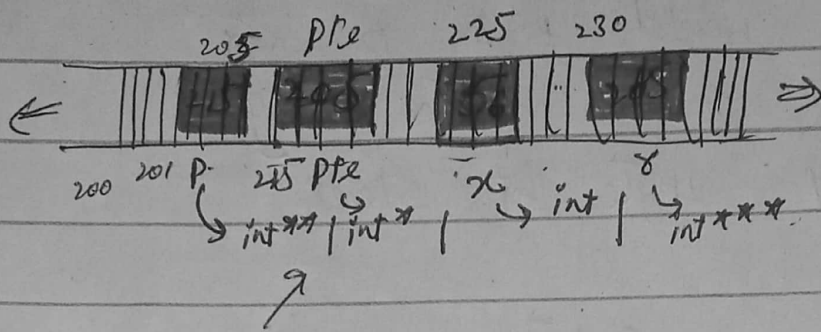 205 ptr 225 230
200 201 p. 215 ptr x r
int** | int* | int | int***.